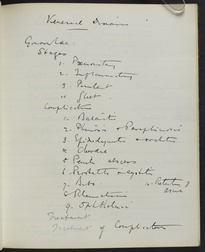 Venereal Diseases
Gonorrhoea
Stages
1. Premonitory
2. Inflammatory
3. Purulent
4. Gleet
Complications
1. Balanitis
2. Phimosis & Paraphimosis
3. Epididymitis & orchitis
4. Chordee
5 abscess
6. Prostatitis & cystitis
7. Bubo
8. Rheumatism
9. Ophthalmia
Treatment
Treatment of Complications